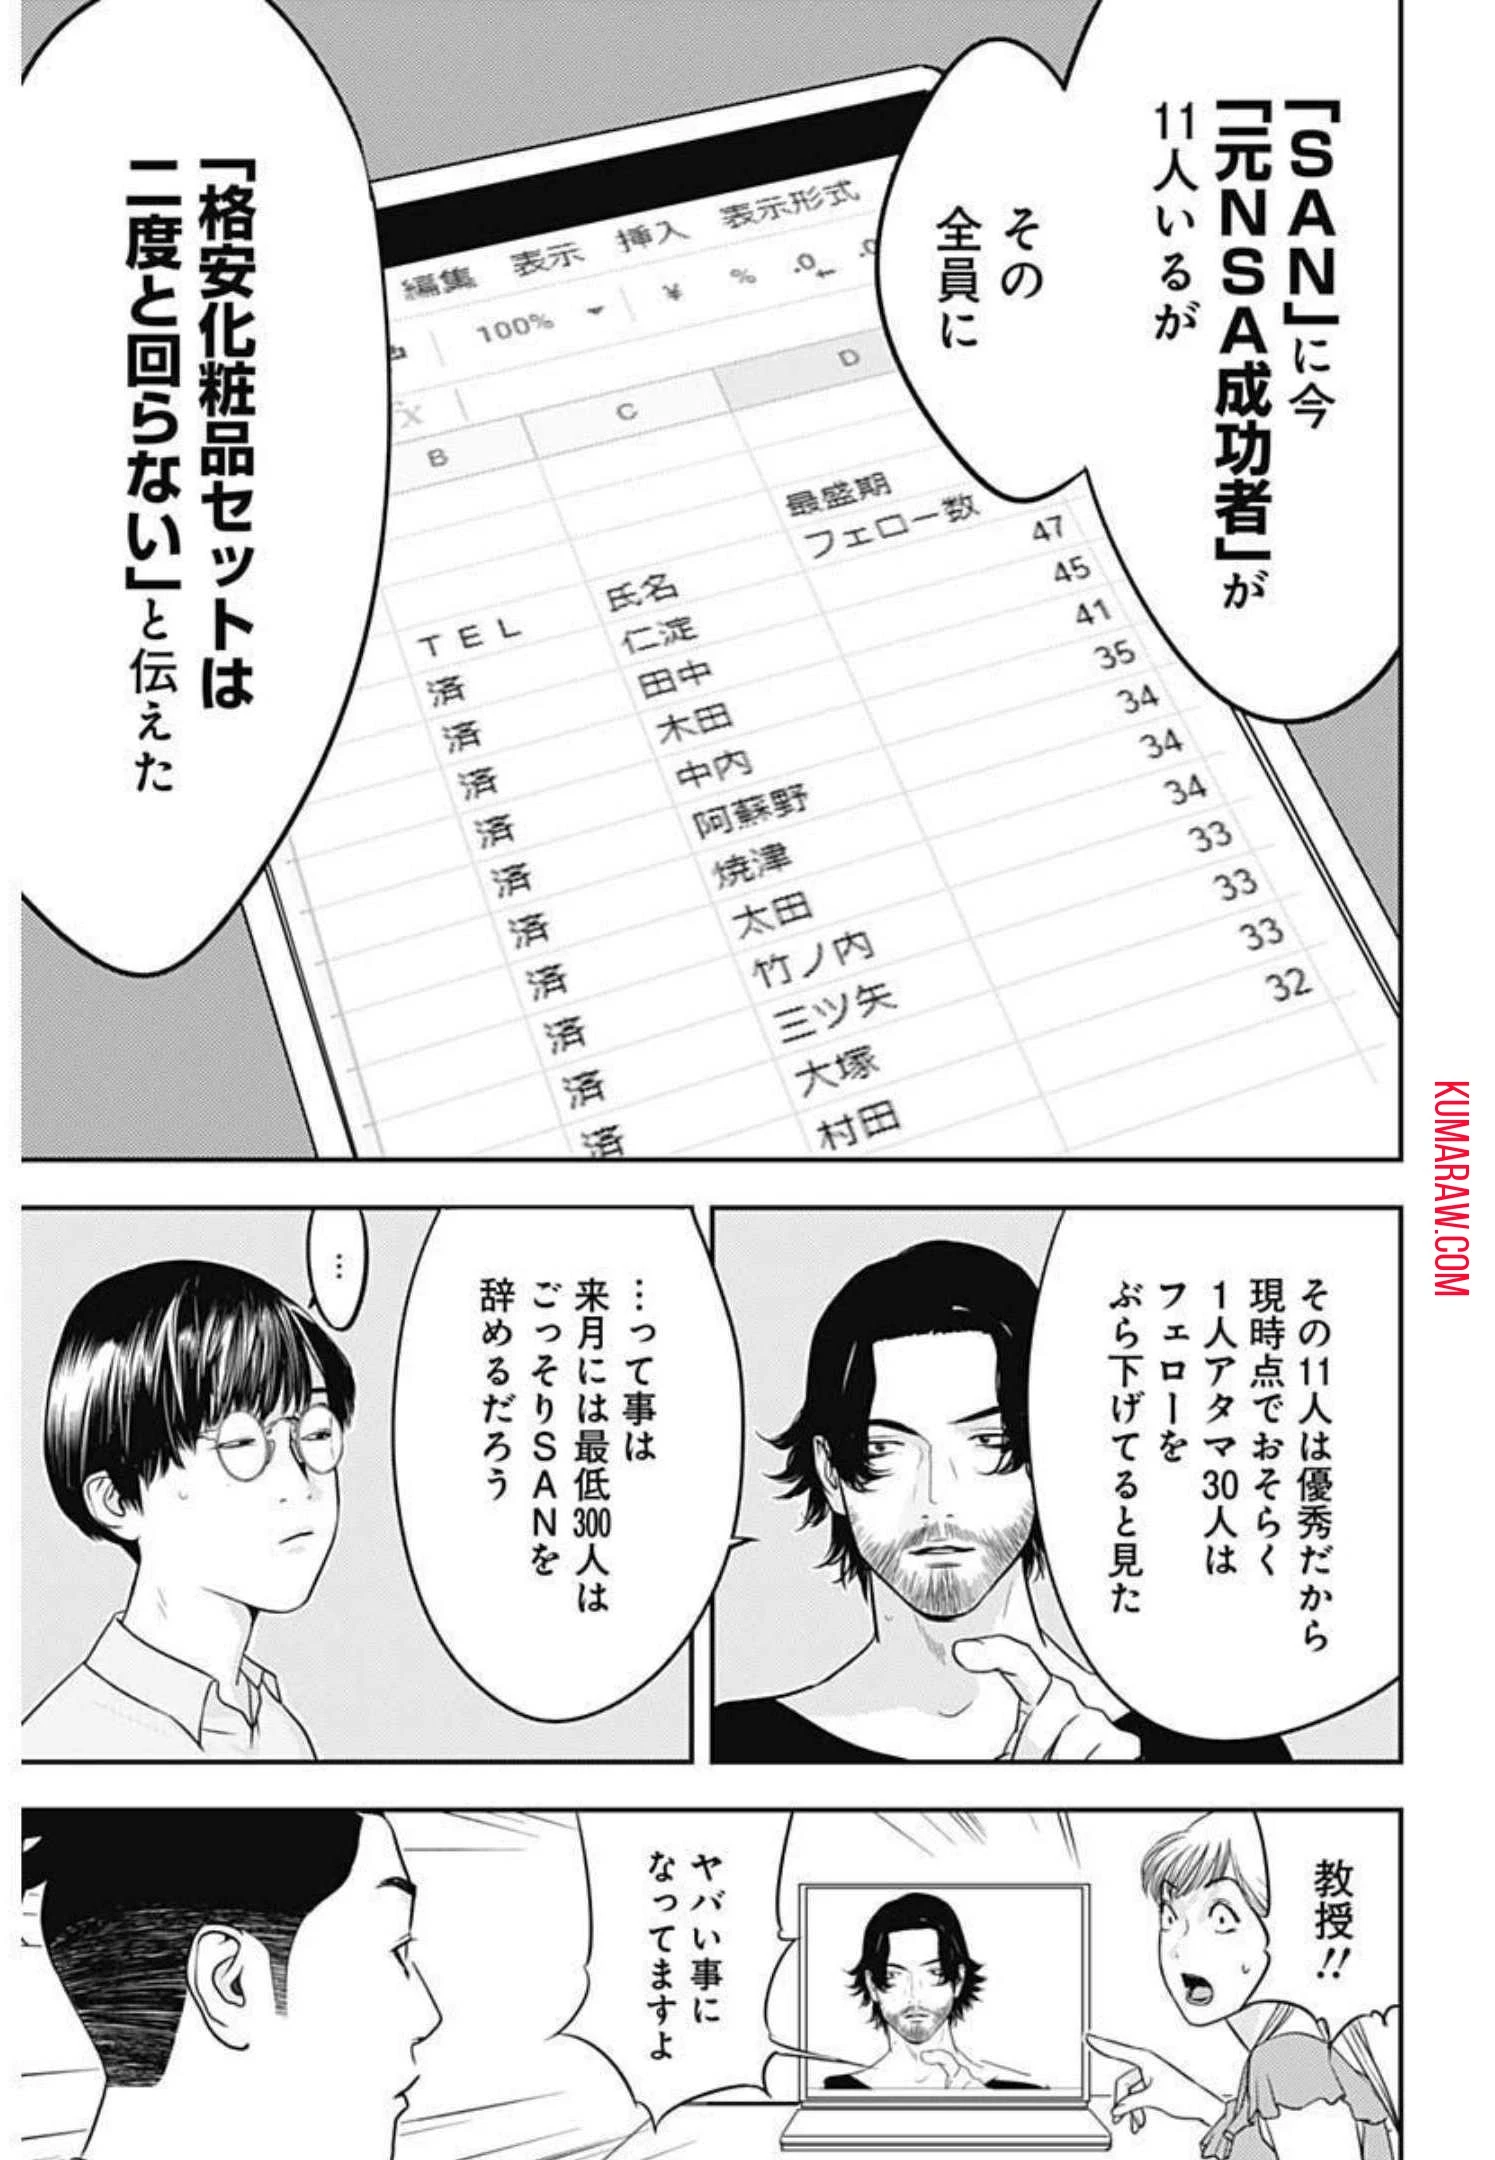 「SAN」に今
「元NSA成功者」が
11人いるが
その
全員に
「格安化粧品セットは
二度と回らない」と伝えた
編集 表示 挿入 表示形式
100% ¥ % .0 .0
B C D
最盛期
フェロー数
TEL 氏名
済 仁淀 47
済 田中 45
済 木田 41
済 中内 35
済 阿蘇野 34
済 焼津 34
済 太田 34
済 竹ノ内 33
済 三ツ矢 33
済 大塚 33
済 村田 32
その11人は優秀だから
現時点でおそらく
1人アタマ30人は
フェローを
ぶら下げてると見た
…って事は
来月には最低300人は
ごっそりSANを
辞めるだろう
…
教授!!
ヤバい事に
なってますよ
KUMARAW.COM